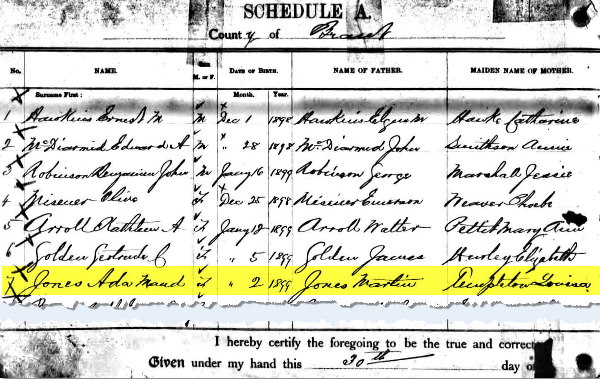 SCHEDULE A.
County of Brant
No. NAME. Sex M. or F. DATE OF BIRTH. NAME OF FATHER. MAIDEN NAME OF MOTHER.
Surname First: Month. Year.
1 Hawkins Ernest M M Dec 1 1898 Hawkins Elgin M Hawke Catharine
2 McDiarmid Edward A M " 28 1898 McDiarmid John Smithson Annie
3 Robinson Benjamin John M Jany 16 1899 Robinson George Marshall Jessie
4 Misener Olive F Dec 25 1898 Misener Emerson Weaver Phebe
5 Arroll Kathleen A F Jany 12 1899 Arroll Walter Pettet Mary Ann
6 Golden Gertrude C F " 5 1899 Golden James Hurley Elizabeth
7 Jones Ada Maud F " 2 1899 Jones Martin Templeton Louisa
I hereby certify the foregoing to be the true and correct
Given under my hand this 30th day of